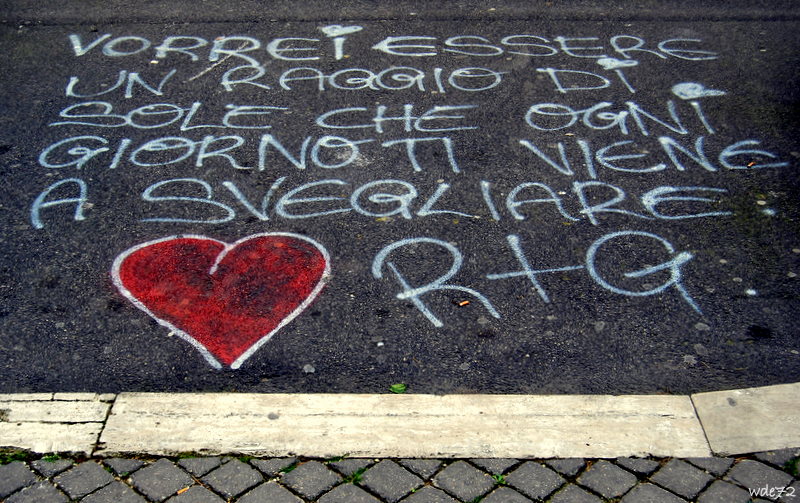 VORREI ESSERE
UN RAGGIO DI
SOLE CHE OGNI
GIORNO TI VIENE
A SVEGLIARE.
R+G.
wde72